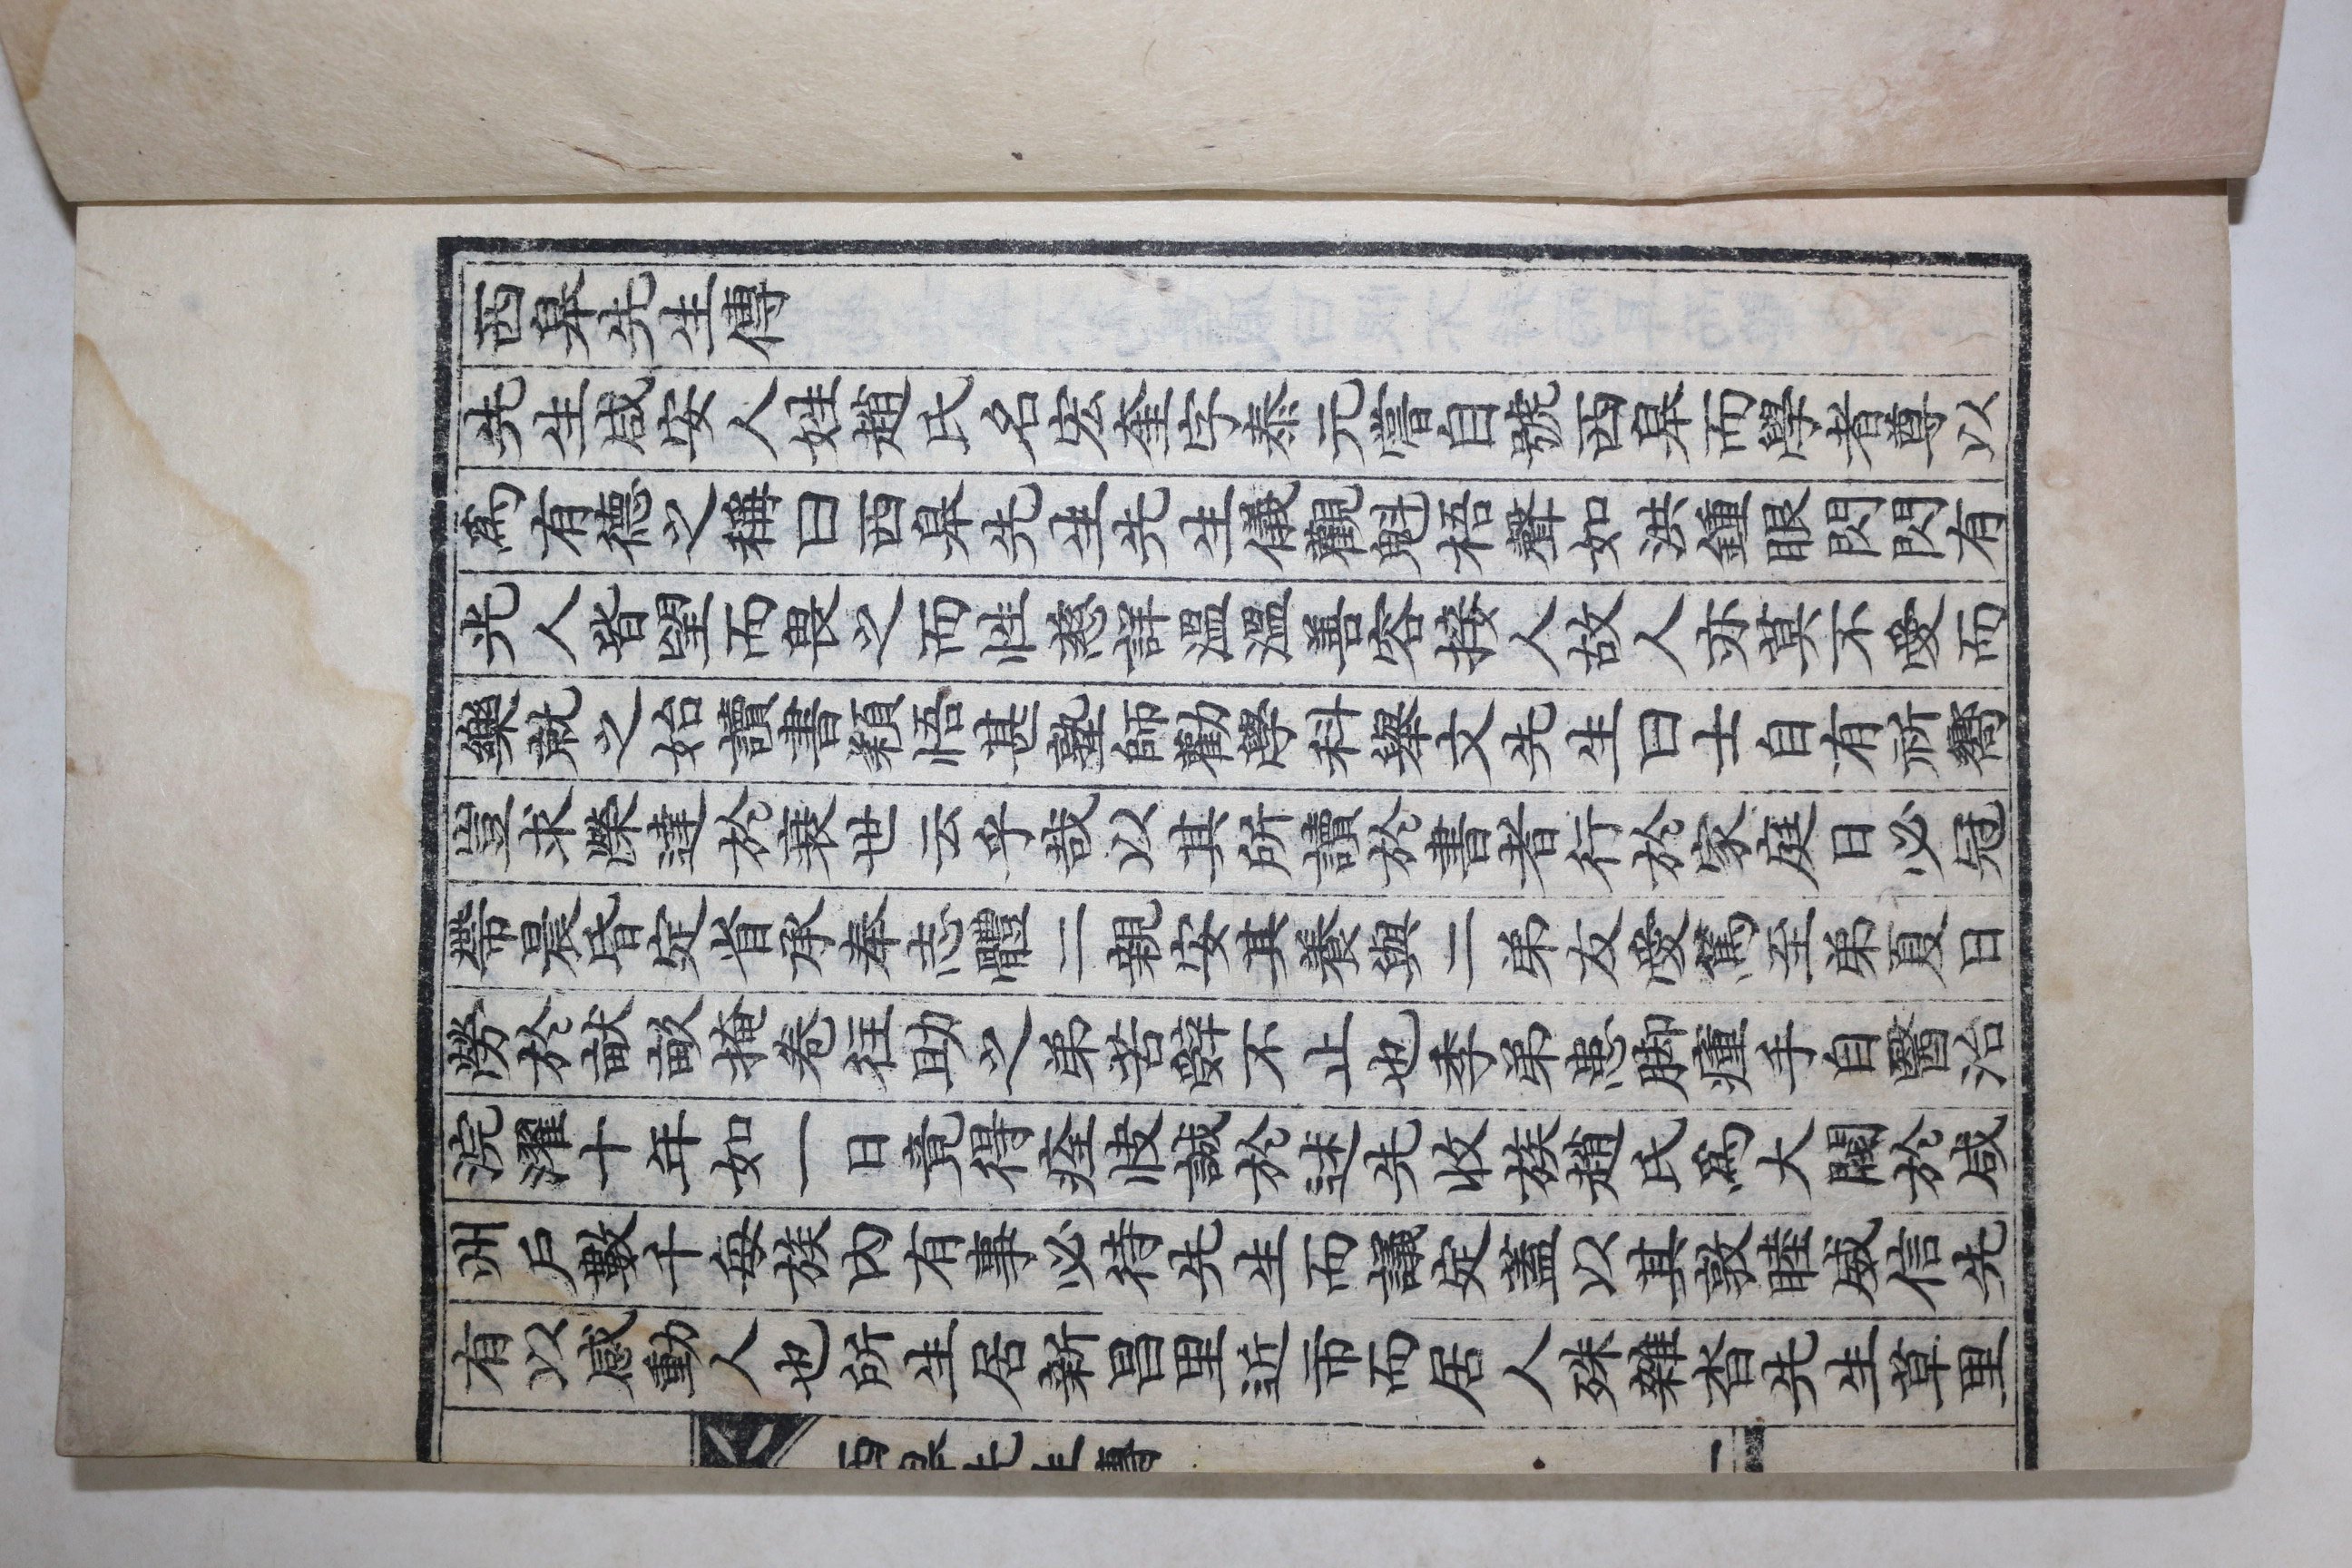 西皐先生傳
先生咸安人姓趙氏名宏奎字泰元嘗自號西皐而學者尊以
爲有德之稱曰西皐先生先生儀觀魁梧聲如洪鍾眼閃閃有
光人皆望而畏之而性慈詳溫溫善容接人故人亦莫不愛而
樂就之始讀書穎悟甚塾師勸學科舉文先生曰士自有祈嚮
豈求榮達於衰世云乎哉以其所讀於書者行於家庭日必冠
帶晨昏定省承奉志體二親安其養與二弟友愛篤至弟夏日
勞於畎畝掩卷往助之弟苦辭不止也季弟患脚瘇手自醫治
浣濯十年如一日竟得痊恔誠於述先收族趙氏爲大閥於咸
州戶數千每族內有事必待先生而議定蓋以其敦睦威信先
有以感動人也所生居新昌里近市而居人殊雜沓先生草里
西皐先生傳
一